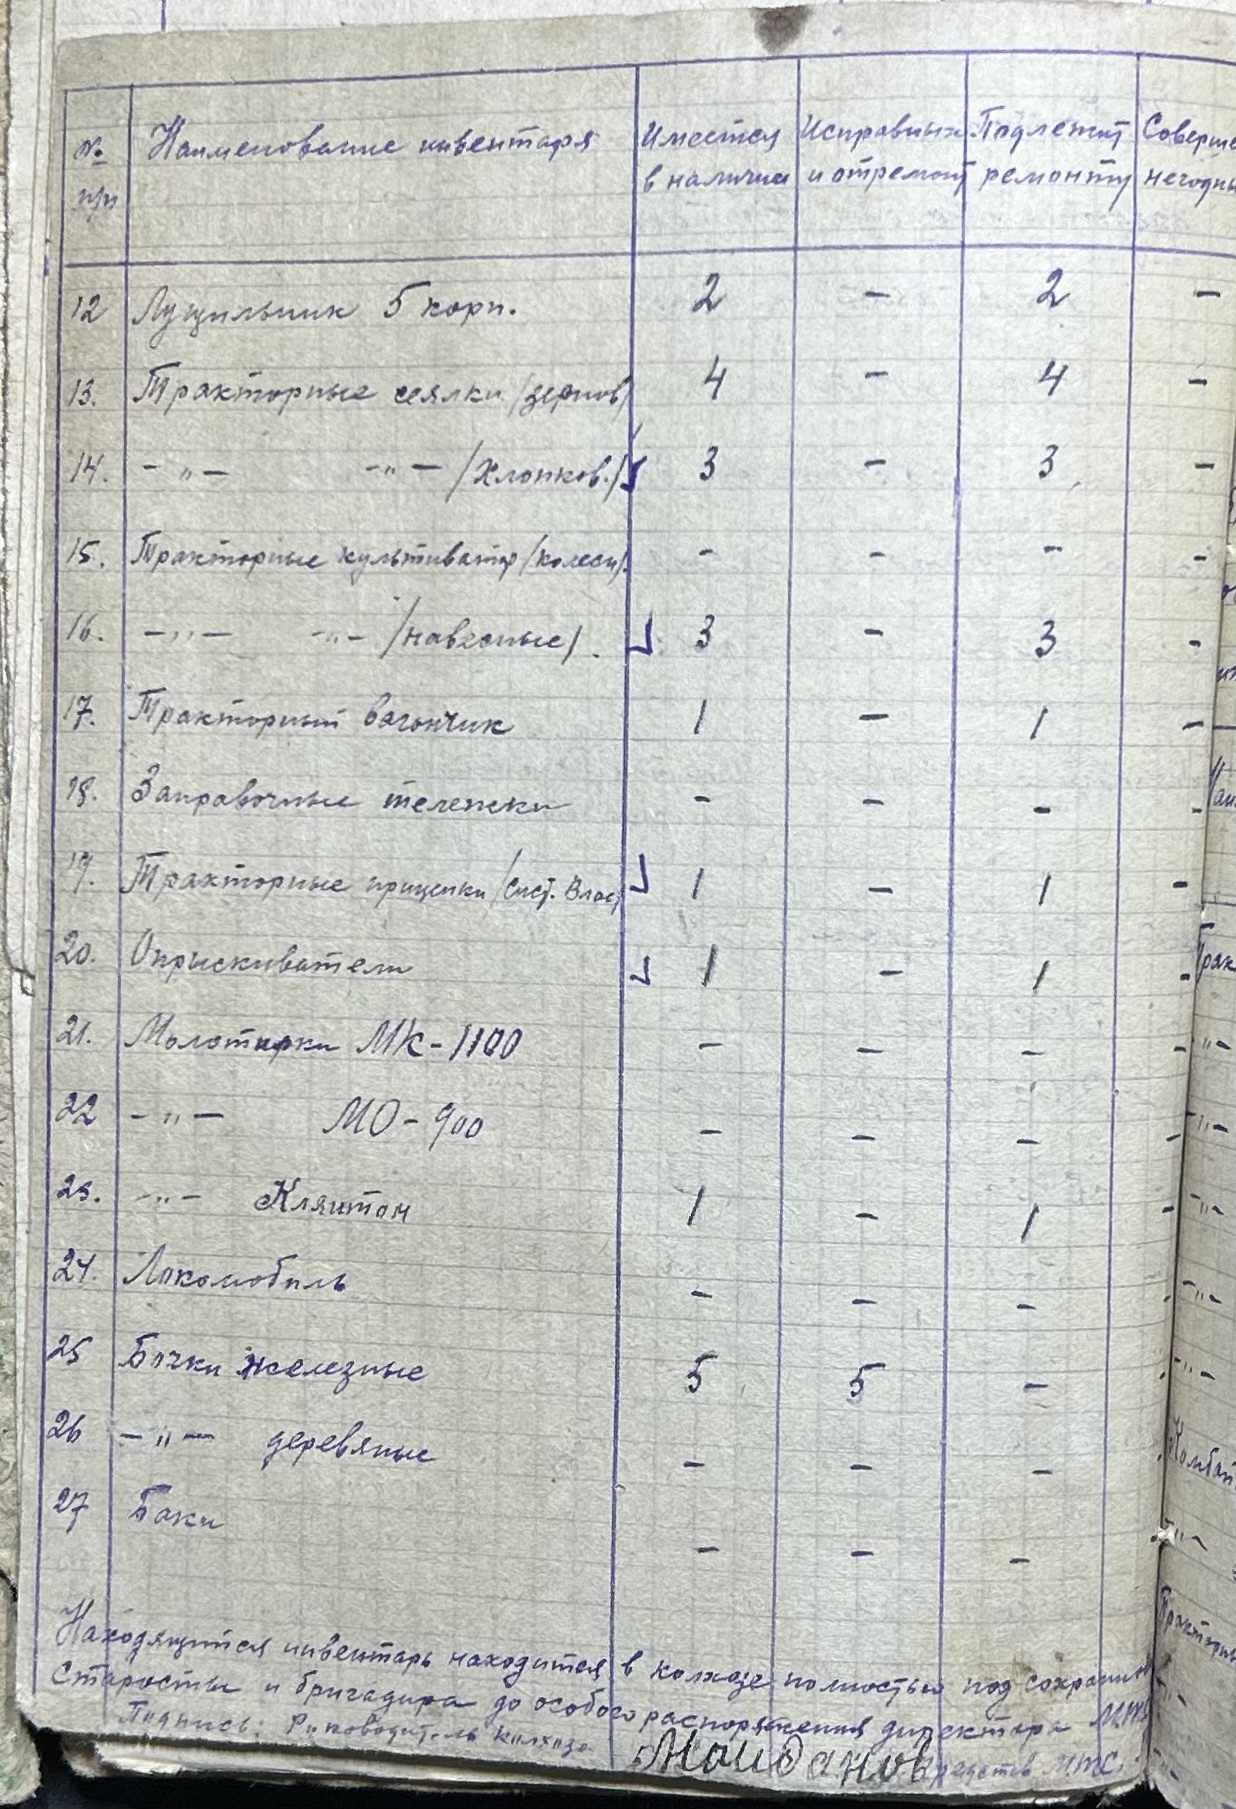 № п/п Наименование инвентаря Имеется в наличии Исправных и отремонт Подлежит ремонту Соверше негодны
12 Лущильник 5 корп. 2 - 2 -
13. Тракторные сеялки /зернов/ 4 - 4 -
14. -"- -"- /Хлопков./ 3 - 3 -
15. Тракторные культиватор /колесн/. - - - -
16. -"- -"- /навесные/. 3 - 3 -
17. Тракторный вагончик 1 - 1 -
18. Заправочные тележки - - - -
19. Тракторные прицепки /Сист. Влас/ 1 - 1 -
20. Опрыскиватели 1 - 1 -
21. Молотарки МК-1100 - - - -
22 -"- МО-900 - - - -
23. -"- Кляйтон 1 - 1 -
24. Локомобиль - - - -
25 Бочки железные 5 5 - -
26 -"- деревяные - - - -
27 Баки - - -
Находящийся инвентарь находится в колхозе полностью под
Старосты и бригадира до особого распоряжения директора МТС
Подпись: Руководитель колхоза Майданов МТС.